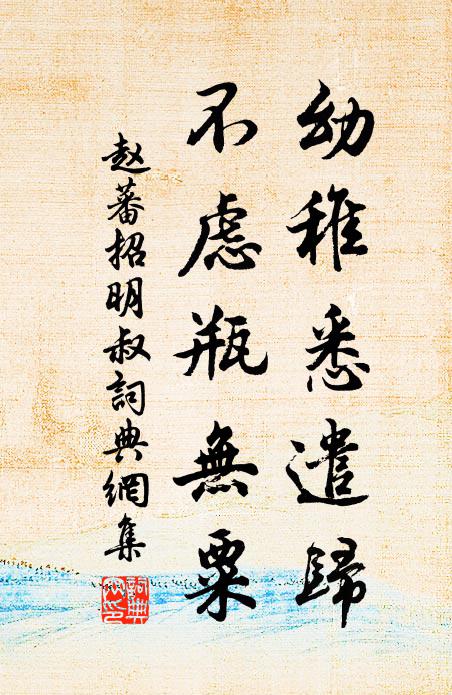 幼稚悉遣歸
不虑瓶無粟
赵蕃招明叔詞典網集